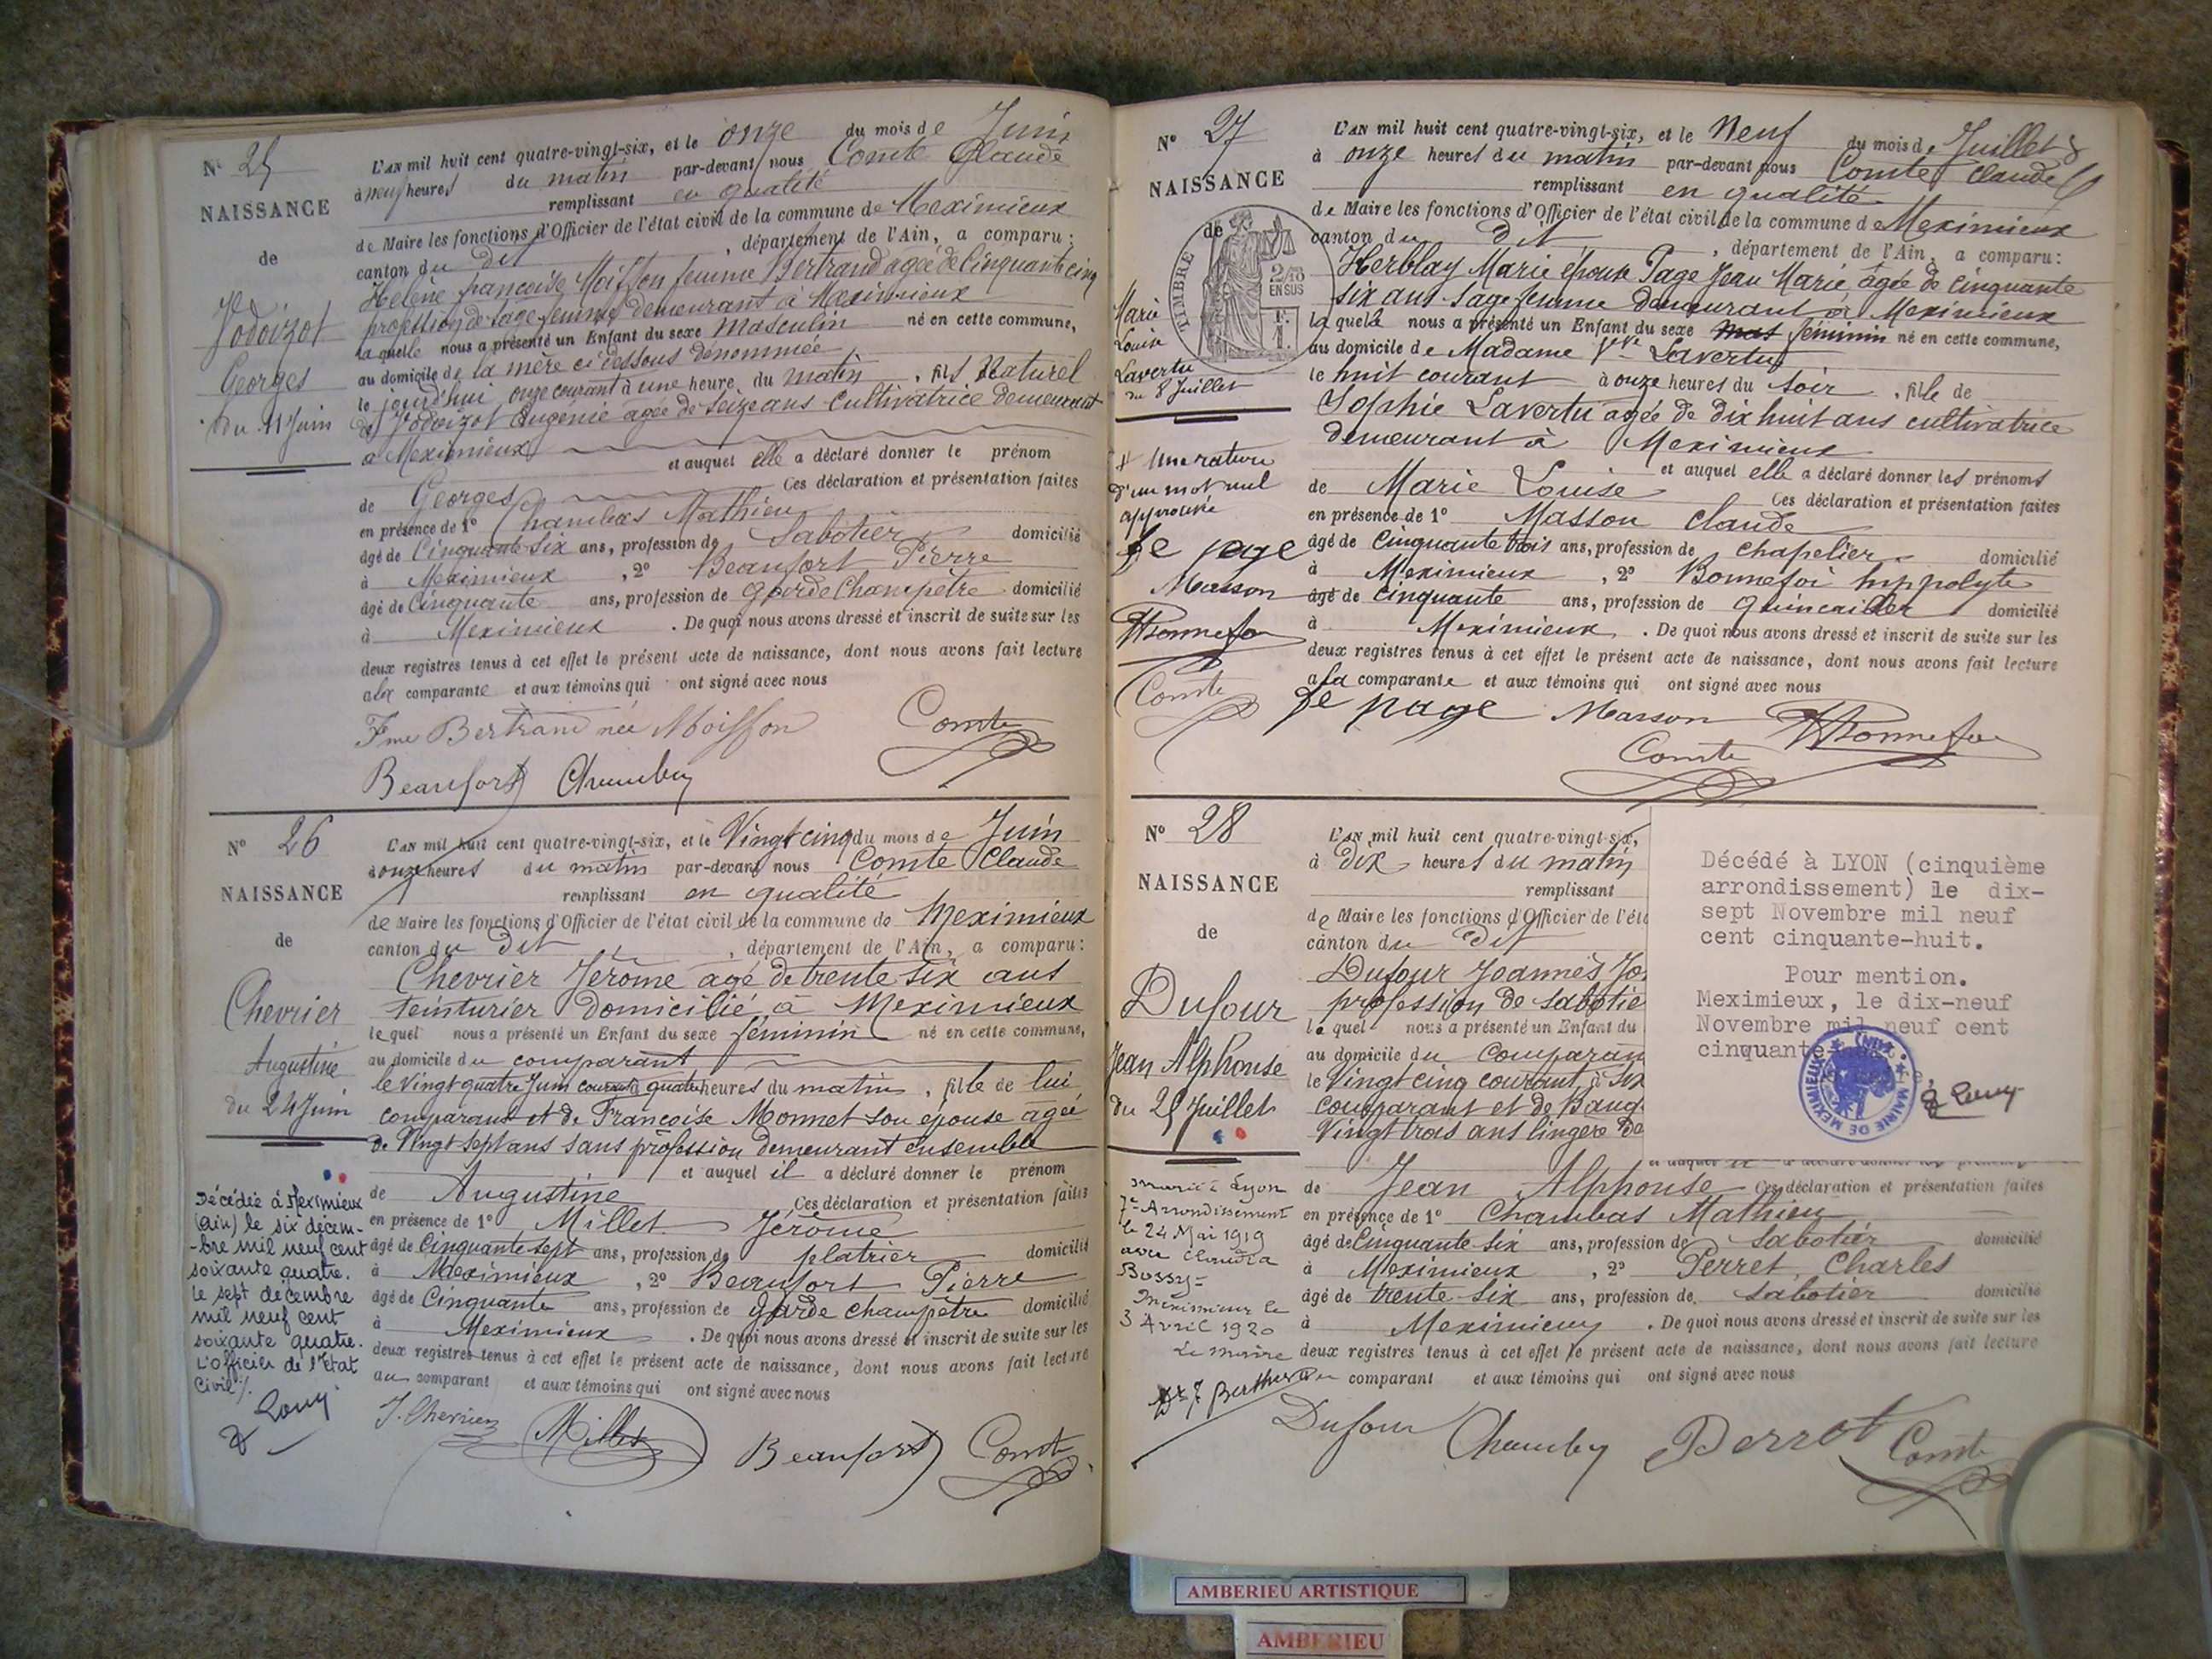 N° 25
NAISSANCE
de
Jodoizot
Georges
du 11 Juin
L'AN mil huit cent quatre-vingt-six, et le onze du mois de Juin
à neuf heures du matin par-devant nous Comte Claude
remplissant en qualité
de Maire les fonctions d'Officier de l'état civil de la commune de Meximieux
canton du dit , département de l'Ain, a comparu :
Helène françoise Moiffon femme Bertrand agée de Cinquante cinq
profession de sage femme demeurant à Meximieux
laquelle nous a présenté un Enfant du sexe masculin né en cette commune,
au domicile de la mère ci dessous dénommée
le jourd'hui onze courant à une heure du matin , fils Naturel
de Jodoizot Eugenie agée de seize ans Cultivatrice demeurant
a Meximieux
et auquel elle a déclaré donner le prénom
de Georges Ces déclaration et présentation faites
en présence de 1° Chambas Mathieu
âgé de Cinquante six ans, profession de Sabotier domicilié
à Meximieux , 2° Beaufort Pierre
âgé de Cinquante ans, profession de Garde Champêtre domicilié
à Meximieux . De quoi nous avons dressé et inscrit de suite sur les
deux registres tenus à cet effet le présent acte de naissance, dont nous avons fait lecture
a la comparante et aux témoins qui ont signé avec nous
Fme Bertrand née Moiffon Comte
Beaufort Chambas
N° 26
NAISSANCE
de
Chevrier
Augustine
du 24 Juin
L'AN mil huit cent quatre-vingt-six, et le Vingt cinq du mois de Juin
à onze heures du matin par-devant nous Comte Claude
remplissant en qualité
de Maire les fonctions d'Officier de l'état civil de la commune de Meximieux
canton du Dit , département de l'Ain, a comparu :
Chevrier Jérôme agé de trente six ans
teinturier domicilié à Meximieux
lequel nous a présenté un Enfant du sexe féminin né en cette commune,
au domicile du comparant
le Vingt quatre Juin courant à quatre heures du matin , fille de lui
comparant et de Françoise Monnet son épouse agée
de Vingt sept ans sans profession demeurant ensemble
et auquel il a déclaré donner le prénom
de Augustine Ces déclaration et présentation faites
en présence de 1° Millet Jérôme
âgé de Cinquante sept ans, profession de platrier domicilié
à Meximieux , 2° Beaufort Pierre
âgé de Cinquante ans, profession de Garde champêtre domicilié
à Meximieux . De quoi nous avons dressé et inscrit de suite sur les
deux registres tenus à cet effet le présent acte de naissance, dont nous avons fait lecture
au comparant et aux témoins qui ont signé avec nous
J. Chevrier Millet Beaufort Comte
Décédée à Meximieux
(Ain) le six décem-
-bre mil neuf cent
soixante quatre.
Le sept décembre
mil neuf cent
soixante quatre.
L'officier de l'Etat
Civil /.
N° 27
NAISSANCE
de
TIMBRE
2/10
EN SUS
Marie
Louise
Lavertu
du 8 Juillet
L'AN mil huit cent quatre-vingt-six, et le Neuf du mois de Juillet
à onze heures du matin par-devant nous Comte Claude
remplissant en qualité
de Maire les fonctions d'Officier de l'état civil de la commune de Meximieux
canton du dit , département de l'Ain, a comparu :
Herblay Marie épouse Page Jean Marie agée de cinquante
six ans sage femme demeurant à Meximieux
laquelle nous a présenté un Enfant du sexe mas féminin né en cette commune,
au domicile de Madame Vve Lavertu
le huit courant à onze heures du soir , fille de
Sophie Lavertu agée de dix huit ans cultivatrice
demeurant à Meximieux
et auquel elle a déclaré donner les prénoms
de Marie Louise Ces déclaration et présentation faites
en présence de 1° Masson Claude
âgé de cinquante trois ans, profession de chapelier domicilié
à Meximieux , 2° Bonnefoi hippolyte
âgé de cinquante ans, profession de Quincailler domicilié
à Meximieux . De quoi nous avons dressé et inscrit de suite sur les
deux registres tenus à cet effet le présent acte de naissance, dont nous avons fait lecture
a la comparante et aux témoins qui ont signé avec nous
fe page Masson Bonnefoi
Comte
+ Une rature
d'un mot nul
approuvée
fe page
Masson
Bonnefoi
Comte
N° 28
NAISSANCE
de
Dufour
Jean Alphonse
du 25 Juillet
L'AN mil huit cent quatre-vingt-six,
à Dix heures du matin
remplissant
de Maire les fonctions d'Officier de l'éta
canton du Dit
Dufour Joannès Jo
profession de sabotie
lequel nous a présenté un Enfant du
au domicile du Comparan
le Vingt cinq courant à six
comparant et de Baug
Vingt trois ans lingère de
de Jean Alphonse Ces déclaration et présentation faites
en présence de 1° Chambas Mathieu
âgé de Cinquante six ans, profession de Sabotier domicilié
à Meximieux , 2° Perret Charles
âgé de trente six ans, profession de Sabotier domicilié
à Meximieux . De quoi nous avons dressé et inscrit de suite sur les
deux registres tenus à cet effet le présent acte de naissance, dont nous avons fait lecture
au comparant et aux témoins qui ont signé avec nous
Dufour Chambas Perret Comte
Marié à Lyon
7e Arrondissement
le 24 Mai 1919
avec Claudia
Bussy
Meximieux le
3 Avril 1920
Le Maire
Décédé à LYON (cinquième
arrondissement) le dix-
sept Novembre mil neuf
cent cinquante-huit.
Pour mention.
Meximieux, le dix-neuf
Novembre mil neuf cent
cinquante
MAIRIE DE MEXIMIEUX (AIN)
AMBERIEU ARTISTIQUE
AMBERIEU